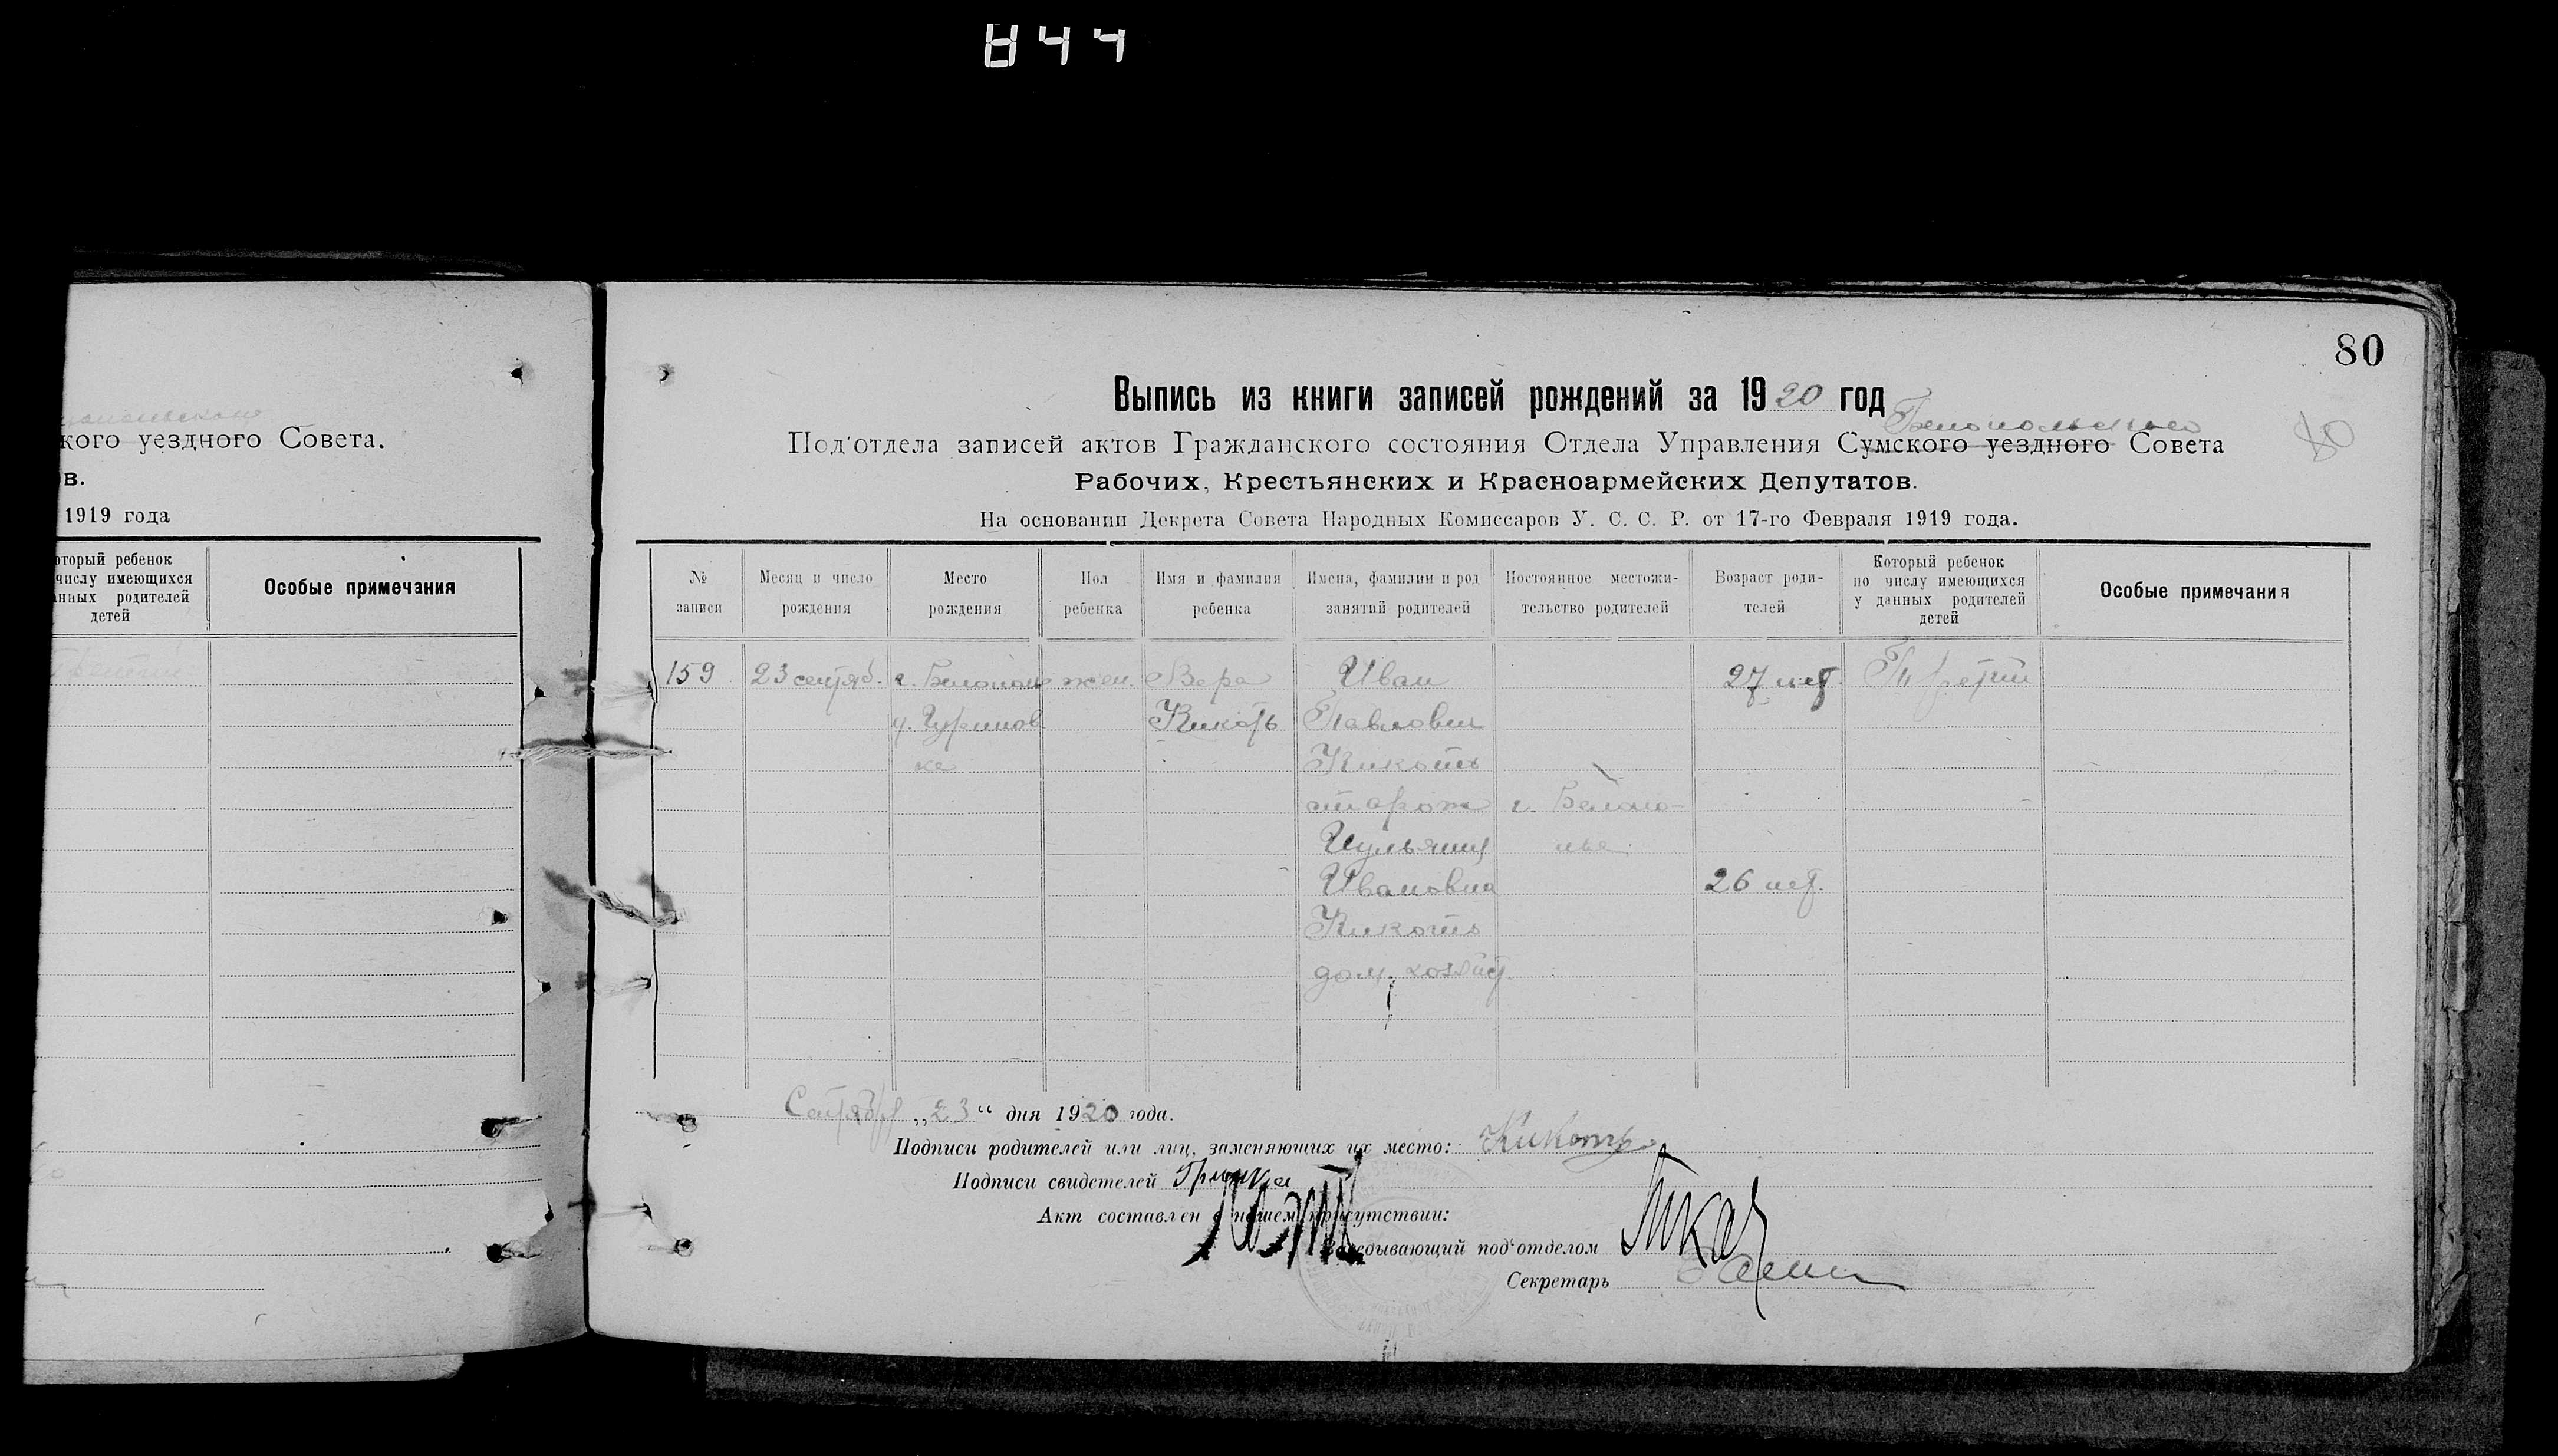 844
кого уездного Совета.
в.
1919 года
оторый ребенок
числу имеющихся
нных родителей
детей
Особые примечания
80
Выпись из книги записей рождений за 1920 год
Белопольского
Под'отдела записей актов Гражданского состояния Отдела Управления Сумского уездного Совета
80
Рабочих, Крестьянских и Красноармейских Депутатов.
На основании Декрета Совета Народных Комиссаров У. С. С. Р. от 17-го Февраля 1919 года.
№ записи
Месяц и число рождения
Место рождения
Пол ребенка
Имя и фамилия ребенка
Имена, фамилии и род занятий родителей
Постоянное местожительство родителей
Возраст родителей
Который ребенок по числу имеющихся у данных родителей детей
Особые примечания
159 23 сентяб. г. Белополь жен. Вера Иван 27 лет Третий
Кикоть Павлович
ке Кикоть
сторож г. Белопо-
Иульяния лье
Ивановна 26 лет.
Кикоть
дом. хозяйст.
Сентября „23“ дня 1920 года.
Подписи родителей или лиц, заменяющих их место: Кикоть
Подписи свидетелей
Акт составлен в нашем присутствии:
Заведывающий под'отделом Ткач
Секретарь